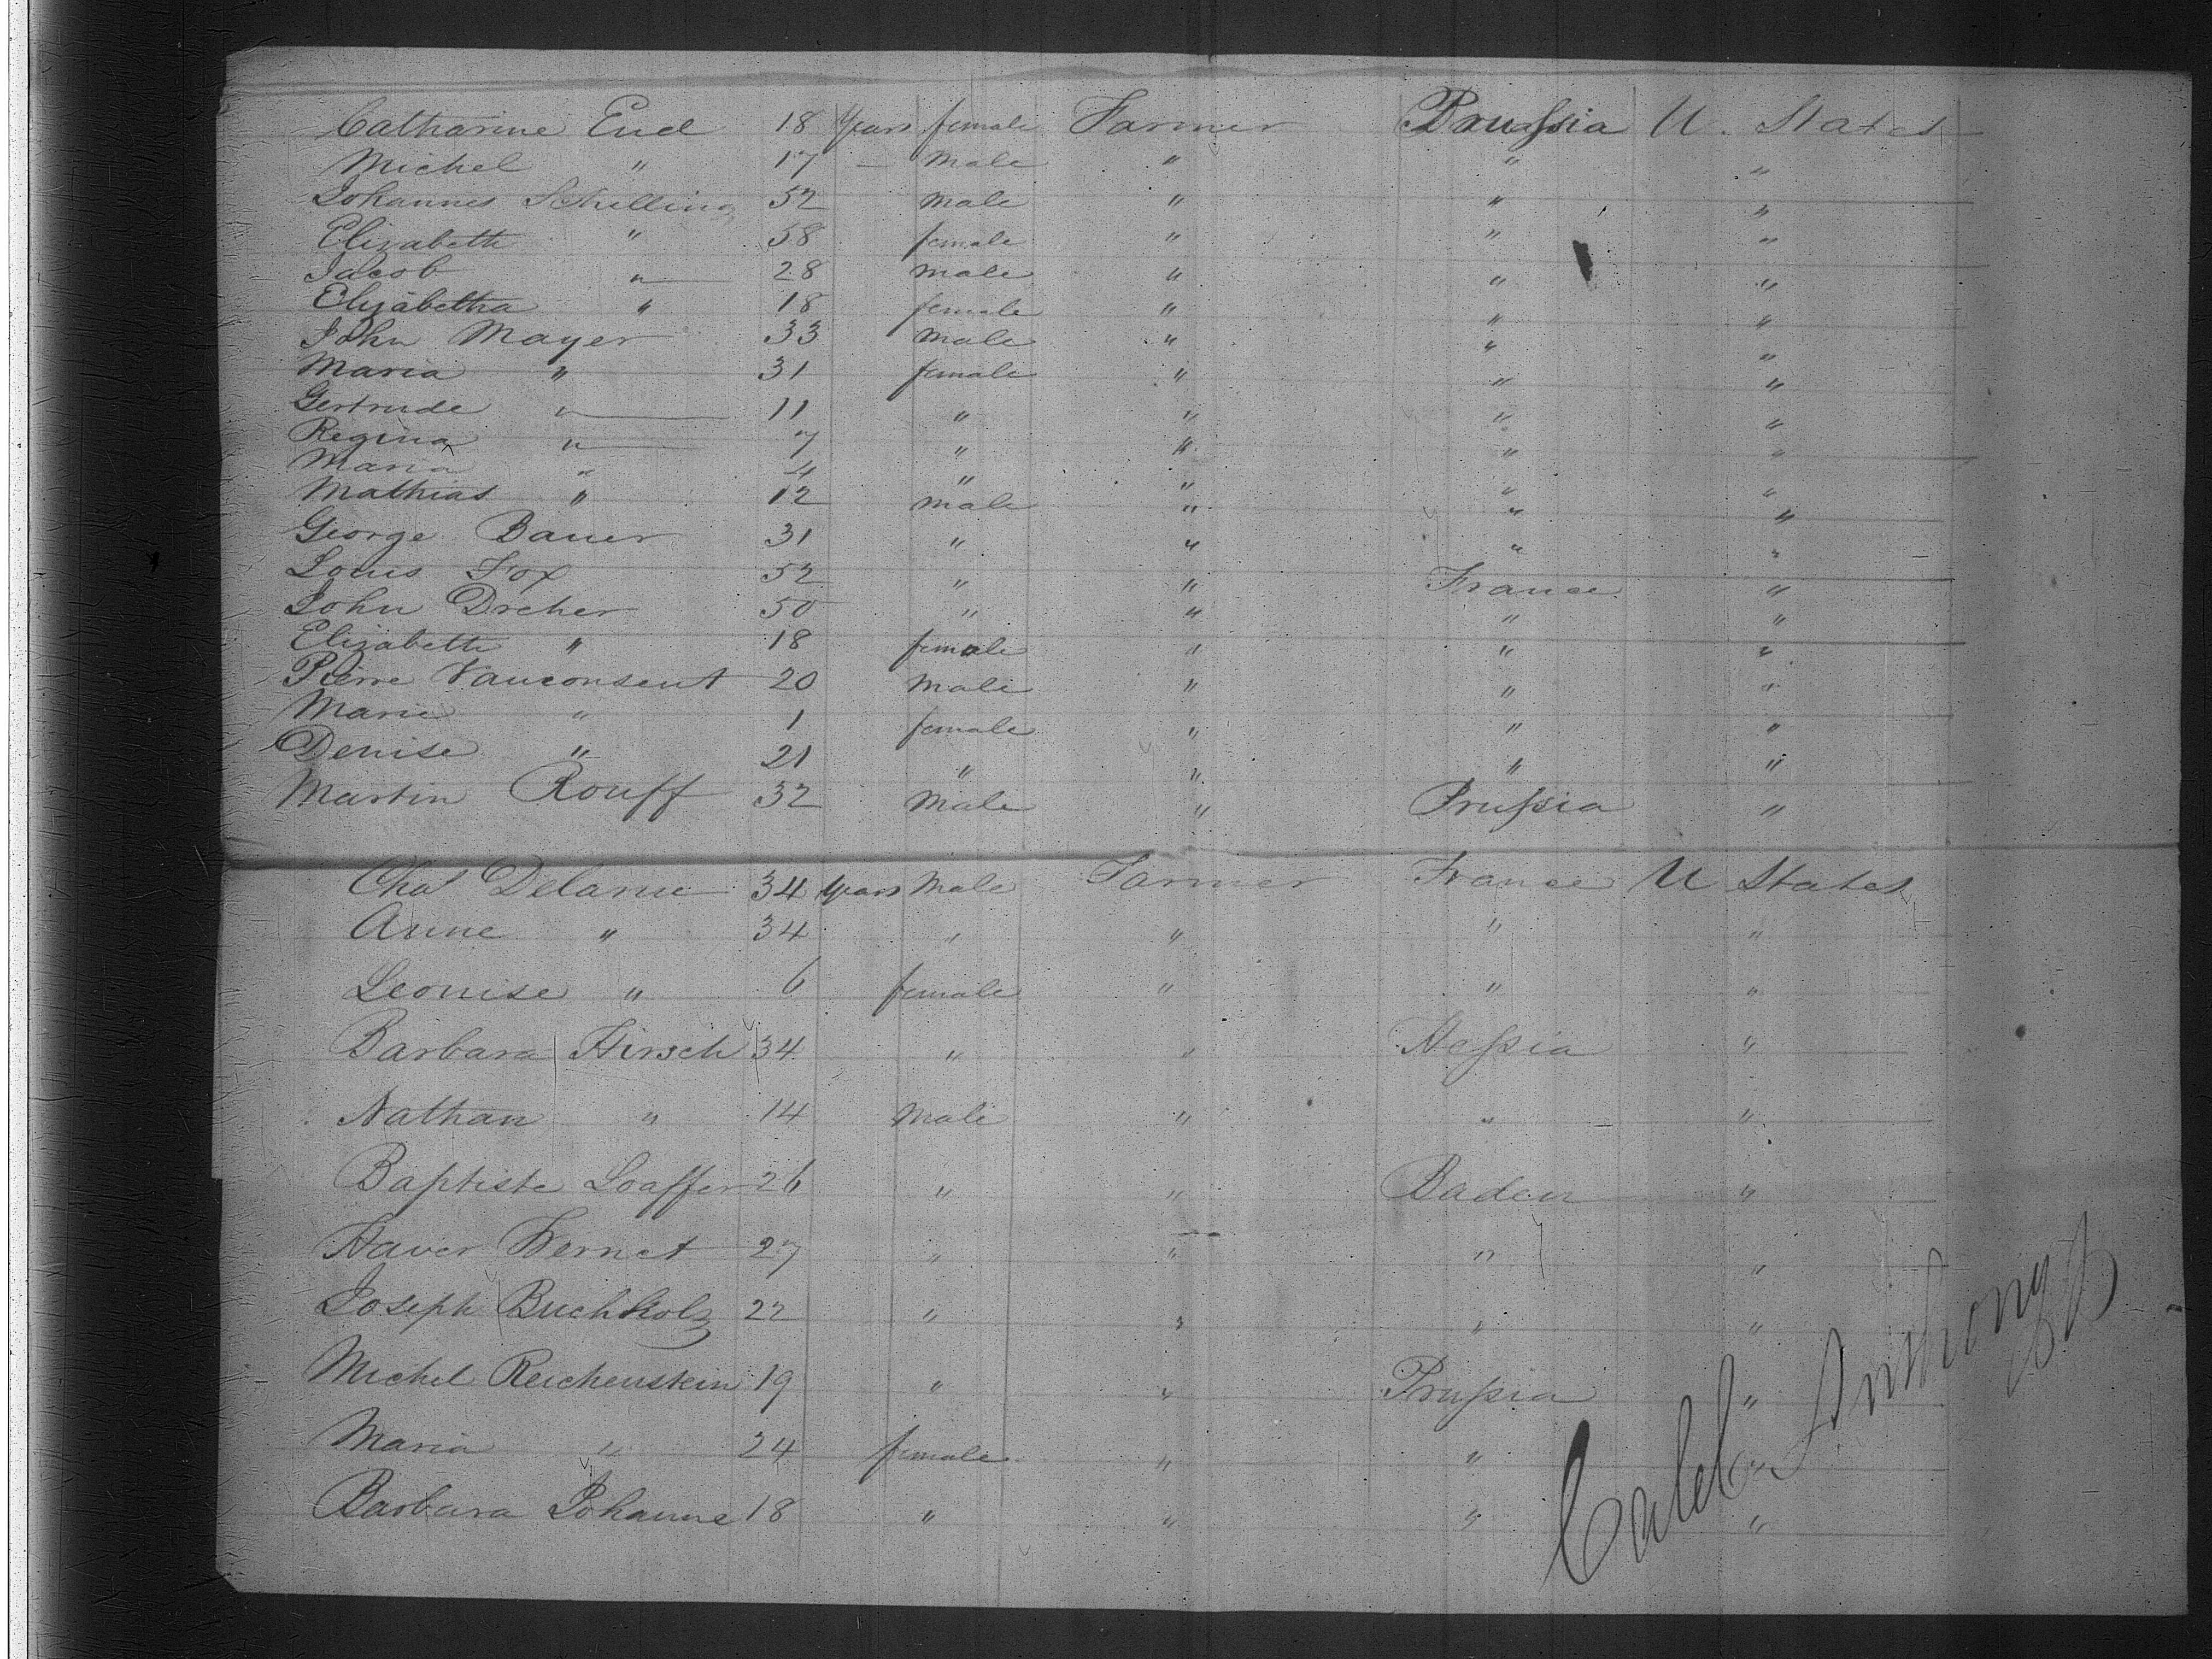 Catharine Eud 18 Years female Farmer Prussia U. States
Michel " 17 — Male " " "
Johannes Schilling 52 Male " " "
Elizabeth " 58 female " " "
Jacob " 28 Male " " "
Elizabetha " 18 female " " "
John Mayer 33 Male " " "
Maria " 31 female " " "
Gertrude " 11 " " " "
Regina " 7 " " " "
Maria " 4 " " " "
Mathias " 12 male " " "
George Bauer 31 " " " "
Louis Fox 52 " " France "
John Dreher 50 " " " "
Elizabeth " 18 female " " "
Pierre Vauconsent 20 Male " " "
Marie " 1 female " " "
Denise " 21 " " " "
Martin Rouff 32 Male " Prussia "
Chas Delarue 34 Years Male Farmer France U States
Anne " 34 " " " "
Leonise " 6 female " " "
Barbara Hirsch 34 " " Hessia "
Nathan " 14 Male " " "
Baptiste Loaffer 26 " " Baden "
Xaver Wernet 27 " " " "
Joseph Buchholz 22 " " " "
Michel Reichenstein 19 " " Prussia "
Maria " 24 female " " "
Barbara Johanne 18 " " " "
Caleb Anthony Jr